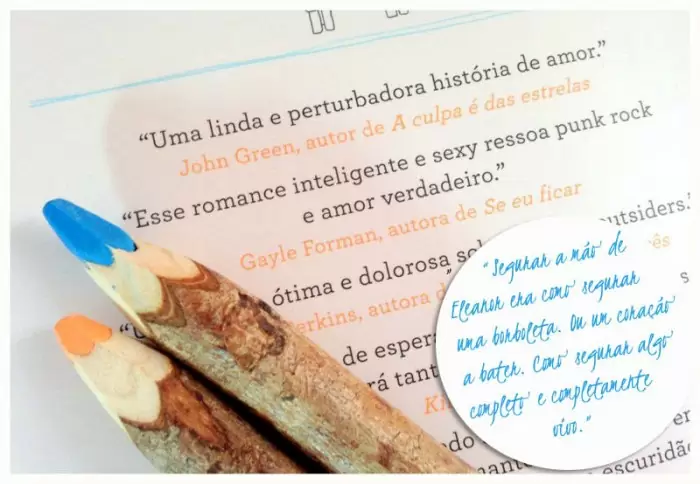 “Uma linda e perturbadora história de amor.”
John Green, autor de A culpa é das estrelas
“Esse romance inteligente e sexy ressoa punk rock
e amor verdadeiro.”
Gayle Forman, autora de Se eu ficar
ótima e dolorosa outsiders.
autora
de
tant
“Segurar a mão de
Eleanor era como segurar
uma borboleta. Ou um coração
a bater. Como segurar algo
completo e completamente
vivo.”
escuridão